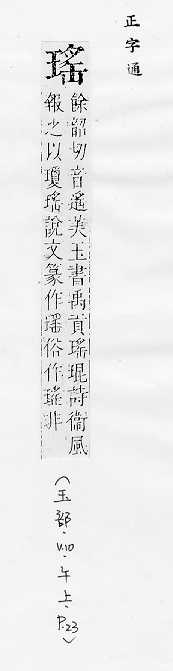 正字通
瑤
餘韶切音遙美玉書禹貢瑤琨詩衞風
報之以瓊瑤說文篆作瑤俗作瑶非
(玉部·V10·午上·P.23)